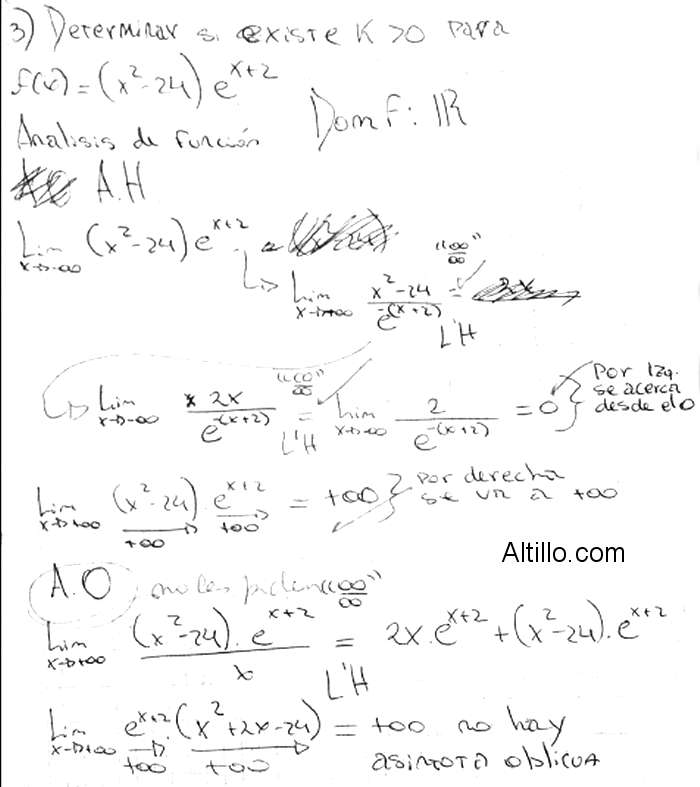 3) Determinar si existe K >0 para
f(x) = (x²-24) e^(x+2)
Analisis de función Dom F: IR
A.H
Lim x→-∞ (x²-24) e^(x+2)
↳ Lim x→-∞ (x²-24)/(e^-(x+2)) "∞/∞" = L'H
↳ Lim x→-∞ 2x/(e^-(x+2)) "∞/∞" = L'H Lim x→-∞ 2/(e^-(x+2)) = 0 } Por Izq. se acerca desde el 0
Lim x→+∞ (x²-24) e^(x+2) = +∞ } por derecha se va a +∞
+∞ +∞
Altillo.com
A.O "∞/∞"
Lim x→+∞ ((x²-24). e^(x+2))/x = L'H 2x.e^(x+2) + (x²-24).e^(x+2)
Lim x→+∞ e^(x+2).(x²+2x-24) = +∞ no hay
+∞ +∞ asintota oblicua